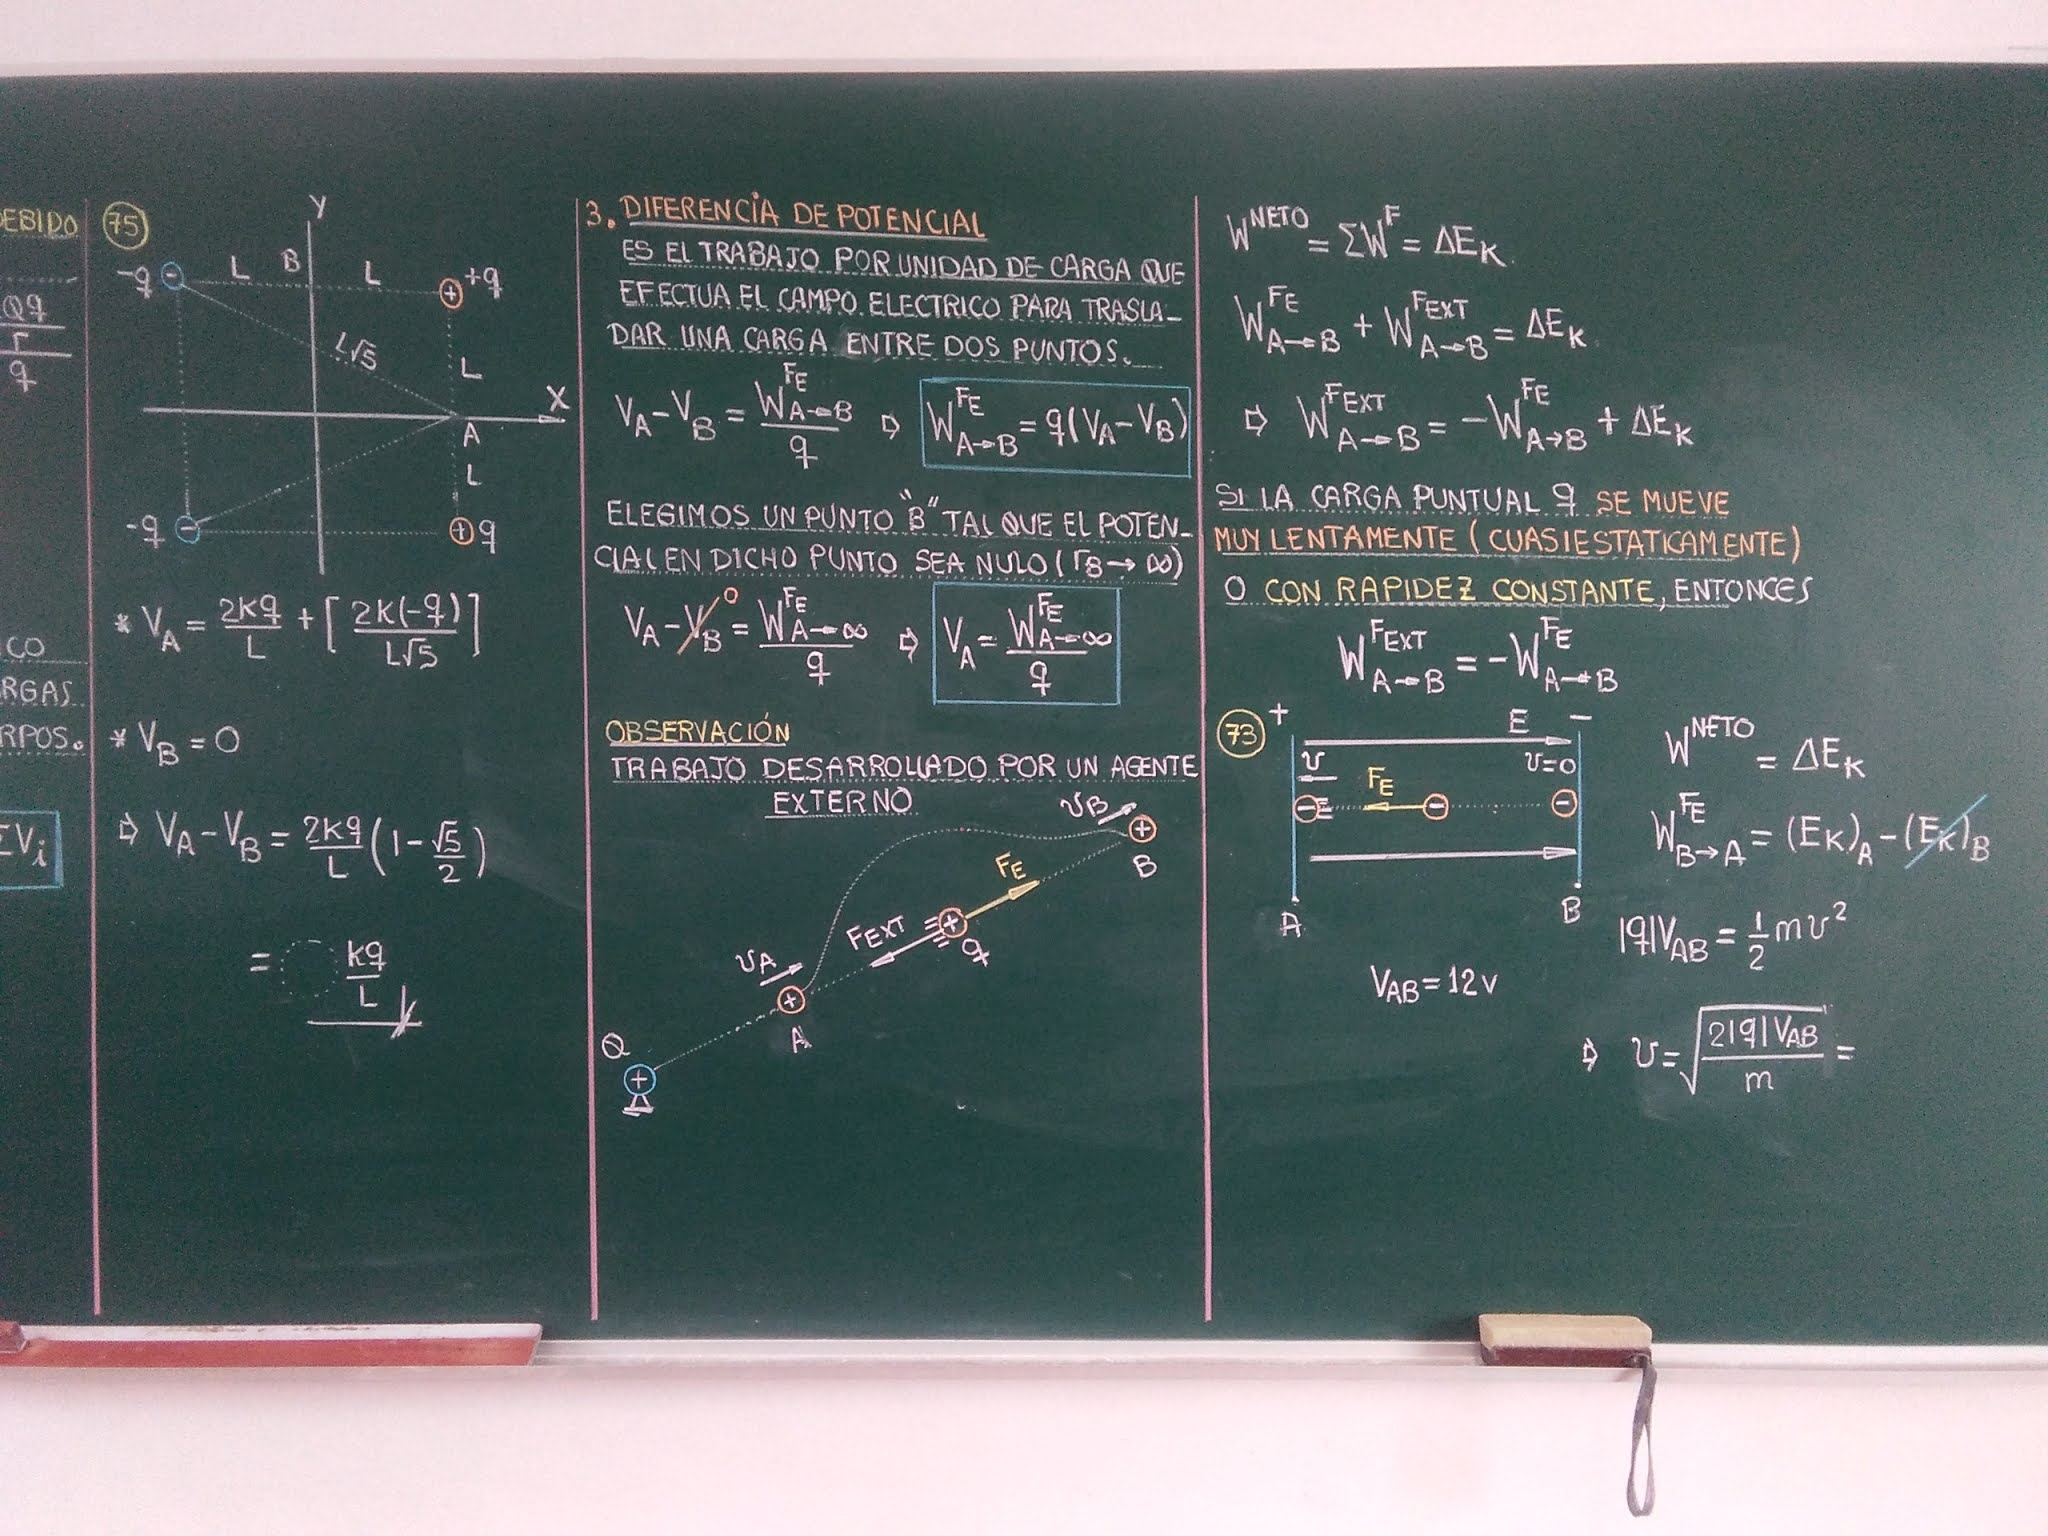 EBIDO
Qq
r
q
CO
RGAS.
RPOS.
ΣVi
75
Y
-q - L B L + +q
L√5
L
X
A
L
-q - + q
* VA = 2Kq/L + [2K(-q)/L√5]
* VB = 0
⇨ VA - VB = 2Kq/L (1 - √5/2)
= Kq/L
3. DIFERENCIA DE POTENCIAL
ES EL TRABAJO POR UNIDAD DE CARGA QUE
EFECTUA EL CAMPO ELECTRICO PARA TRASLA-
DAR UNA CARGA ENTRE DOS PUNTOS.
VA - VB = W^FE A→B / q ⇨ W^FE A→B = q(VA - VB)
ELEGIMOS UN PUNTO "B" TAL QUE EL POTEN-
CIAL EN DICHO PUNTO SEA NULO (rB → ∞)
VA - VB 0 = W^FE A→∞ / q ⇨ VA = W^FE A→∞ / q
OBSERVACIÓN
TRABAJO DESARROLLADO POR UN AGENTE
EXTERNO
vB
+
B
FE
FEXT + q
vA
+
A
Q
+
W^NETO = ΣW^F = ΔEK
W^FE A→B + W^FEXT A→B = ΔEK
⇨ W^FEXT A→B = -W^FE A→B + ΔEK
SI LA CARGA PUNTUAL q SE MUEVE
MUY LENTAMENTE (CUASIESTATICAMENTE)
O CON RAPIDEZ CONSTANTE, ENTONCES
W^FEXT A→B = -W^FE A→B
73
+ E -
v v=0
FE
- - -
A B
VAB = 12V
W^NETO = ΔEK
W^FE B→A = (EK)A - (EK)B
|q|VAB = 1/2 mv²
⇨ v = √(2|q|VAB/m) =